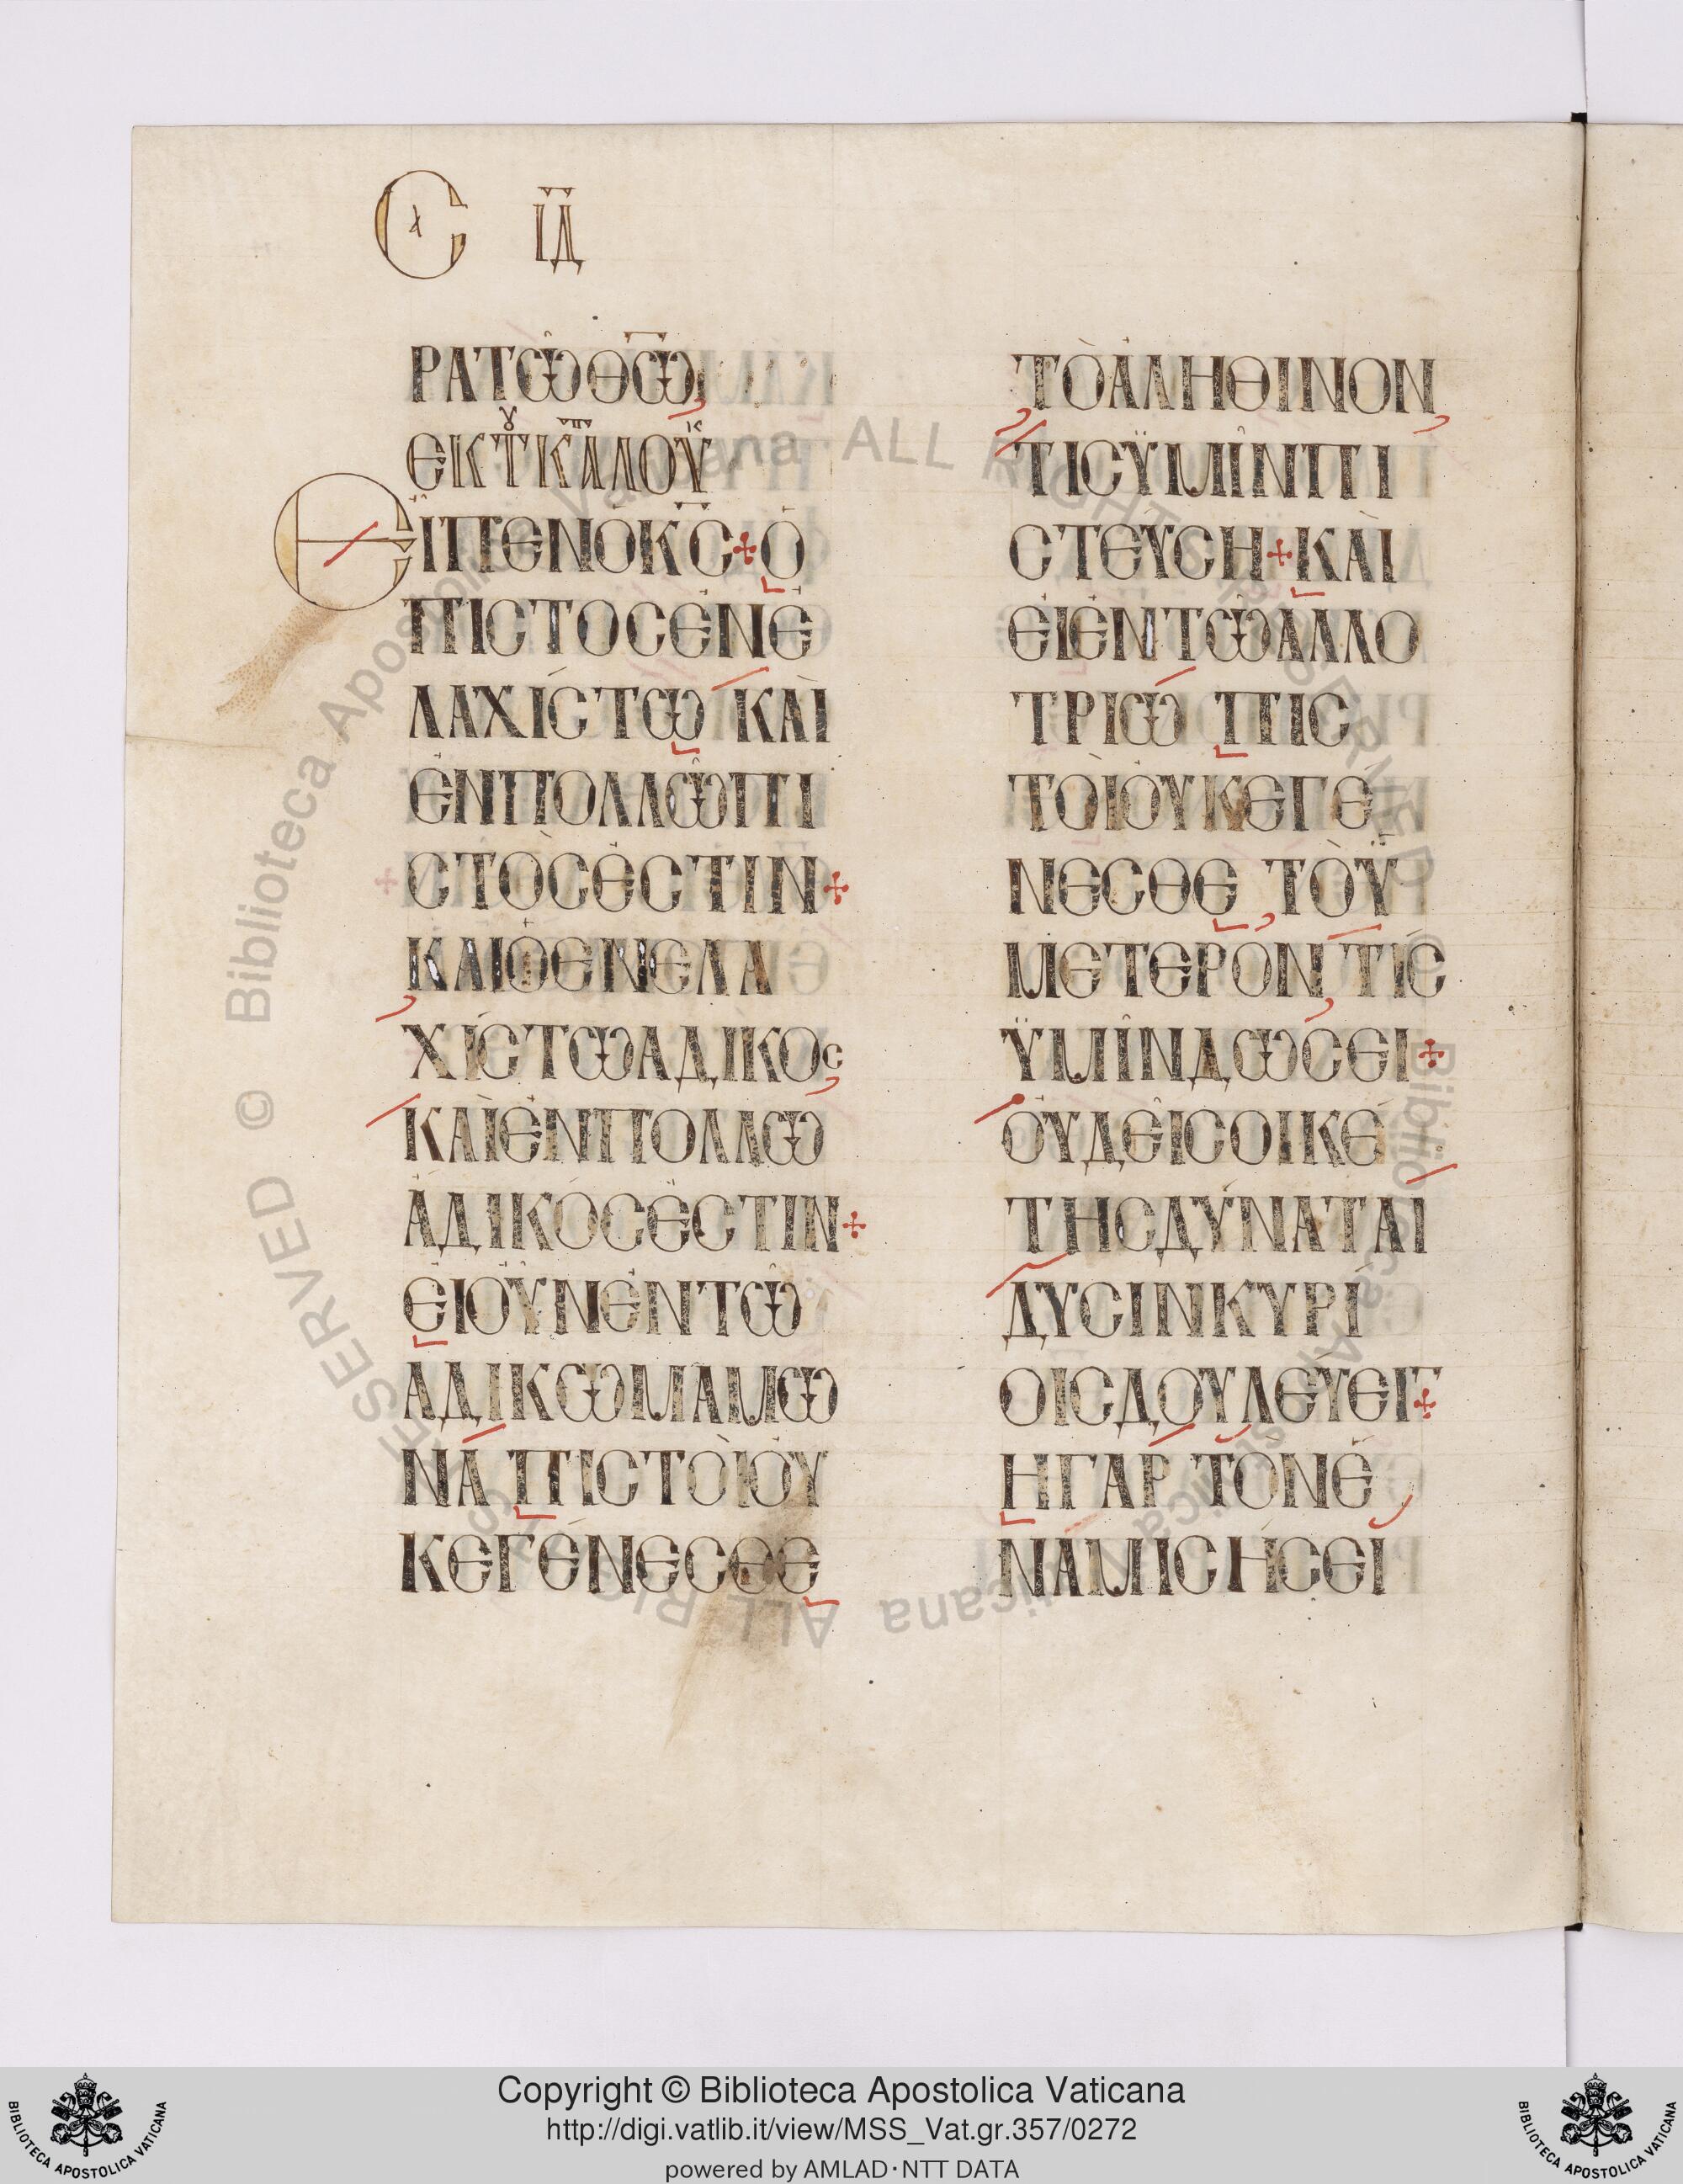 Ϲ ΙΔ
ΡΑΤѠΘѠ
ΕΚ Τ ΚΑΛΟΥ
ΕΙΠΕΝΟΚϹ+Ο
ΠΙϹΤΟϹΕΝΕ
ΛΑΧΙϹΤѠ ΚΑΙ
ΕΝΠΟΛΛѠΠΙ
ϹΤΟϹΕϹΤΙΝ+
ΚΑΙΟΕΝΕΛΑ
ΧΙϹΤѠΑΔΙΚΟϹ
ΚΑΙΕΝΠΟΛΛѠ
ΑΔΙΚΟϹΕϹΤΙΝ+
ΕΙΟΥΝΕΝΤѠ
ΑΔΙΚѠΜΑΜѠ
ΝΑ ΠΙϹΤΟΙΟΥ
ΚΕΓΕΝΕϹΘΕ
ΤΟΑΛΗΘΙΝΟΝ
ΤΙϹΫΜΙΝΠΙ
ϹΤΕΥϹΗ+ΚΑΙ
ΕΙΕΝΤѠΑΛΛΟ
ΤΡΙѠ ΠΙϹ
ΤΟΙΟΥΚΕΓΕ
ΝΕϹΘΕ ΤΟΫ
ΜΕΤΕΡΟΝ ΤΙϹ
ΫΜΙΝΔѠϹΕΙ+
ΟΥΔΕΙϹΟΙΚΕ
ΤΗϹΔΥΝΑΤΑΙ
ΔΥϹΙΝΚΥΡΙ
ΟΙϹΔΟΥΛΕΥΕΙ+
ΗΓΑΡ ΤΟΝΕ
ΝΑΜΙϹΗϹΕΙ
© Biblioteca Apostolica Vaticana ALL RIGHTS RESERVED
Copyright © Biblioteca Apostolica Vaticana
http://digi.vatlib.it/view/MSS_Vat.gr.357/0272
powered by AMLAD·NTT DATA
BIBLIOTECA APOSTOLICA VATICANA
BIBLIOTECA APOSTOLICA VATICANA